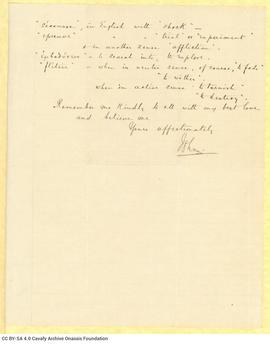 in English with "shock" —
" " "trial" or "experiment"
& in another sense "affliction".
" — to consult into, to explore.
" — when in neuter sense, of course, "to fade"
"to wither".
when in active sense "to tarnish"
"to destroy".
Remember me kindly to all with my best love
and believe me
Yours affectionately
John
CC BY-SA 4.0 Cavafy Archive Onassis Foundation